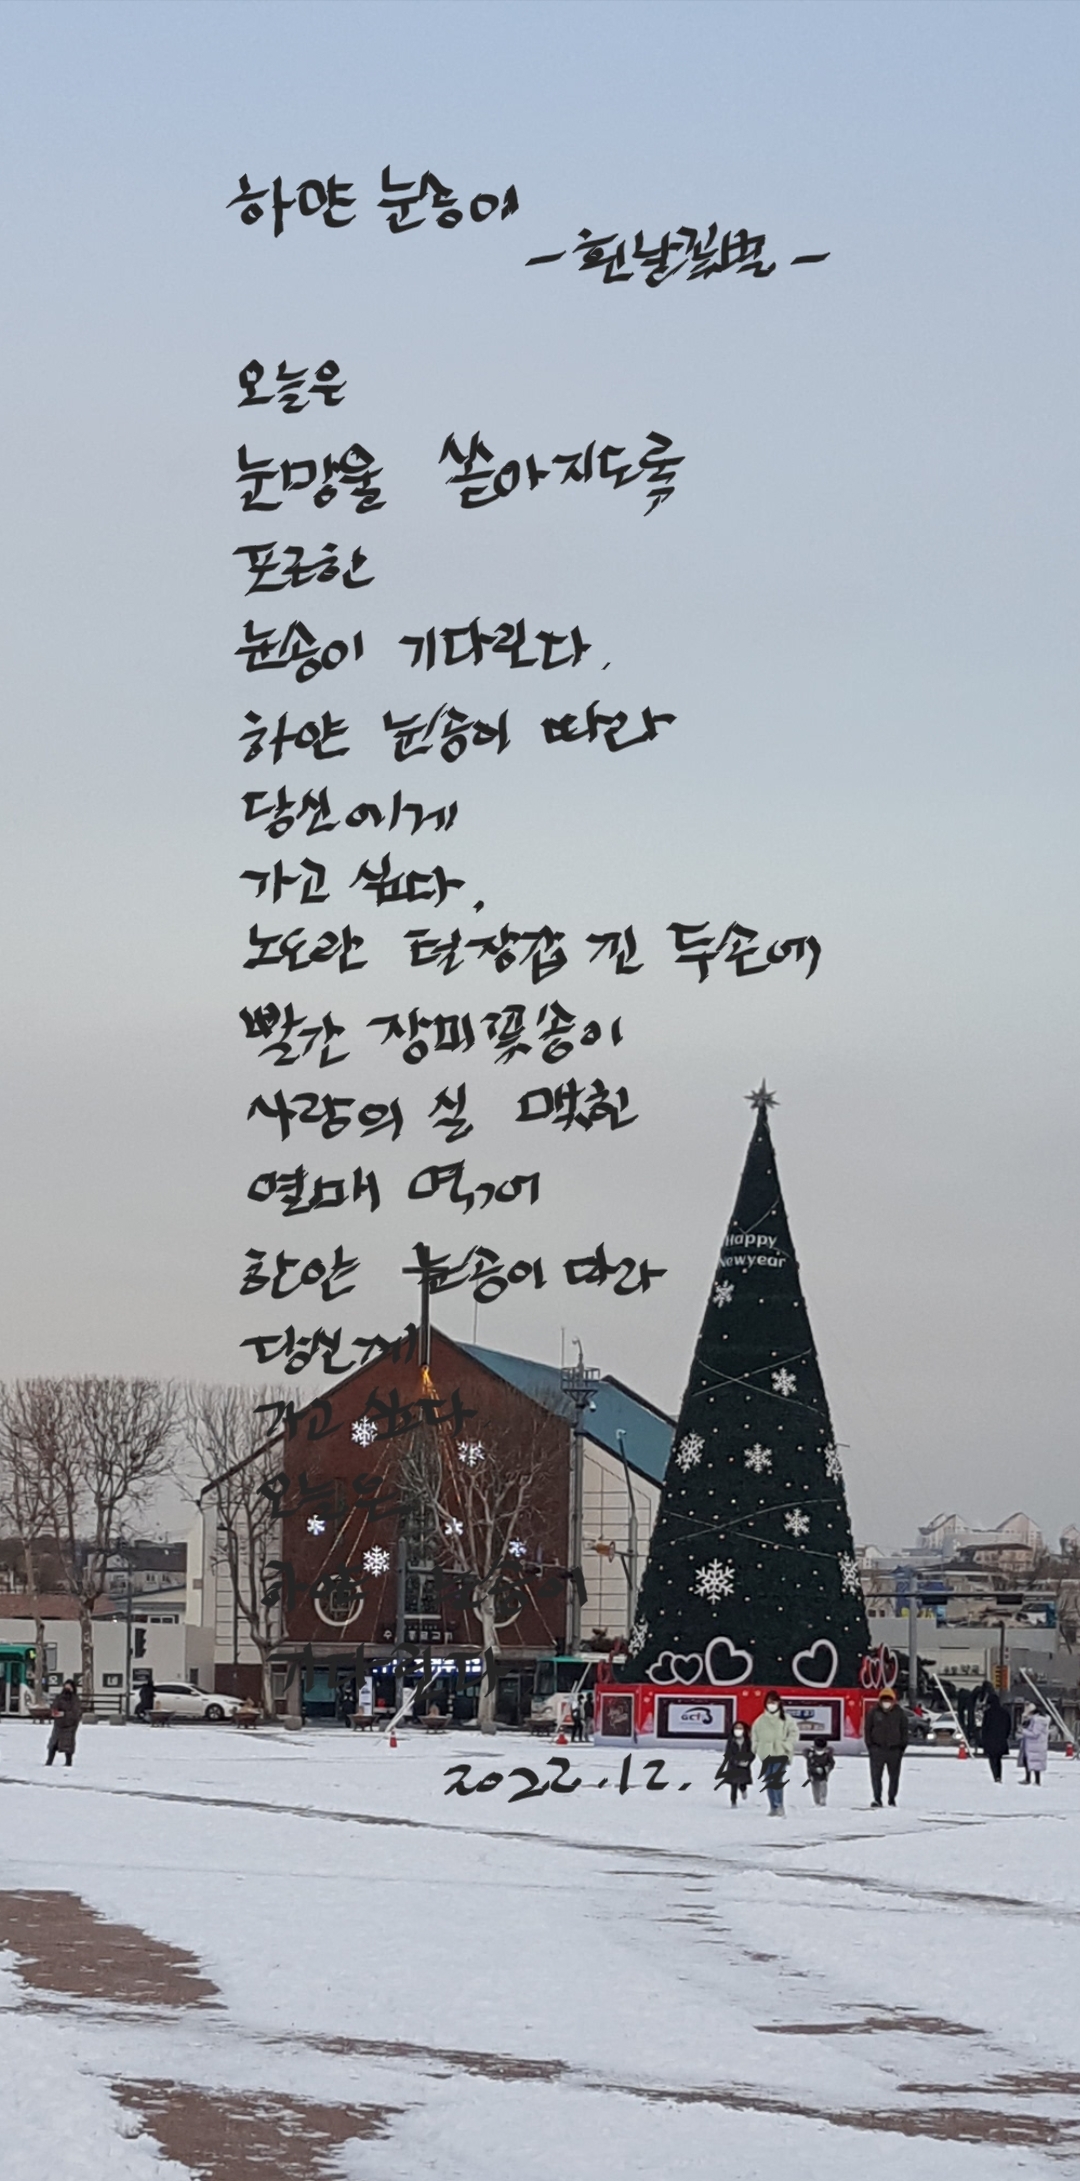 하얀 눈송이
- 흰날꽃별 -
오늘은
눈망울 쏟아지도록
포근한
눈송이 기다린다.
하얀 눈송이 따라
당신에게
가고 싶다.
노오란 털장갑 낀 두손에
빨간 장미꽃송이
사랑의 실 맺힌
열매 엮어
하얀 눈송이 따라
당신께
가고 싶다
오늘은
하얀 눈송이
기다린다
2022.12.
Happy
Newyear
GCT